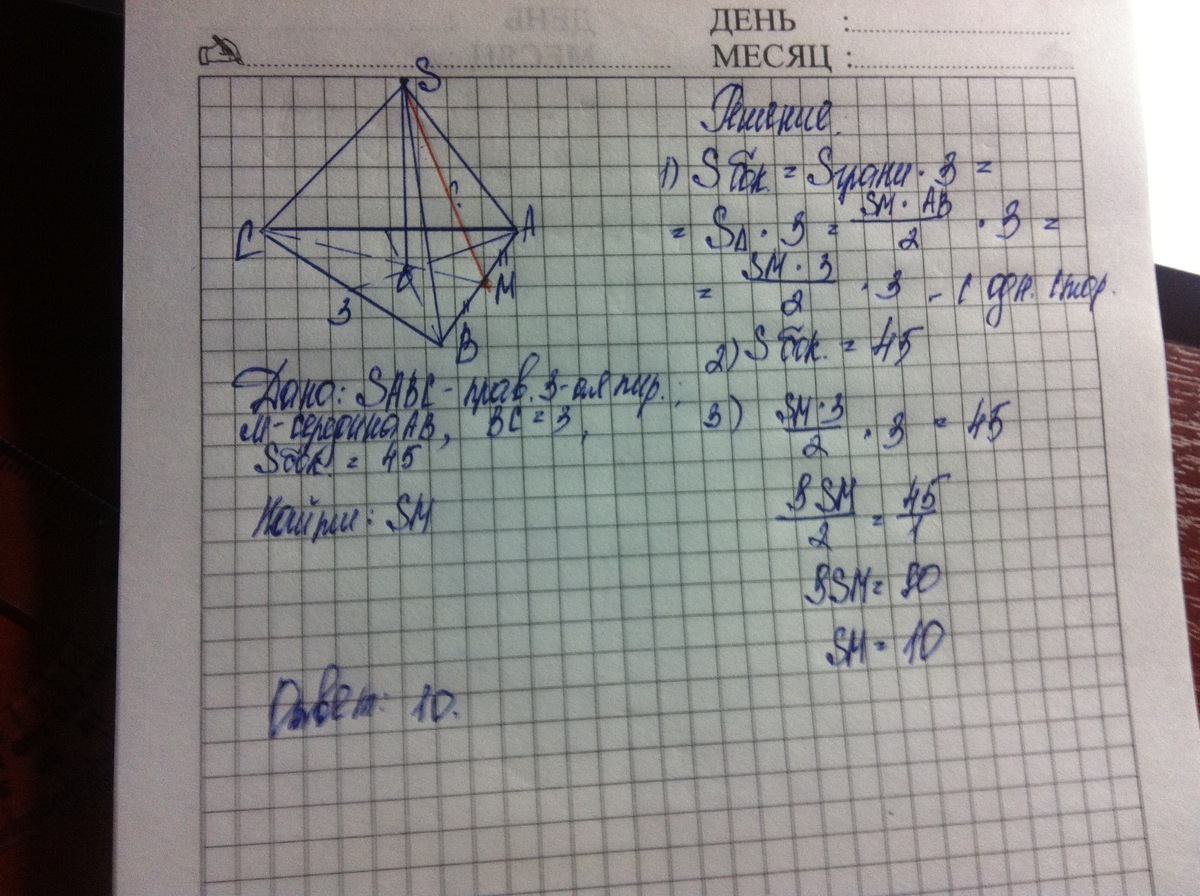 ДЕНЬ :
МЕСЯЦ :
S
C
A
O
M
B
3
?
Дано: SABC - прав. 3-ая пир.;
M - середина AB, BC = 3,
Sбок. = 45
Найти: SM
Ответ: 10.
Решение.
1) Sбок. = Sграни · 3 =
= S∆ · 3 = SM · AB / 2 · 3 =
= SM · 3 / 2 · 3 - с одн. стор.
2) Sбок. = 45
3) SM · 3 / 2 · 3 = 45
9SM / 2 = 45 / 1
9SM = 90
SM = 10